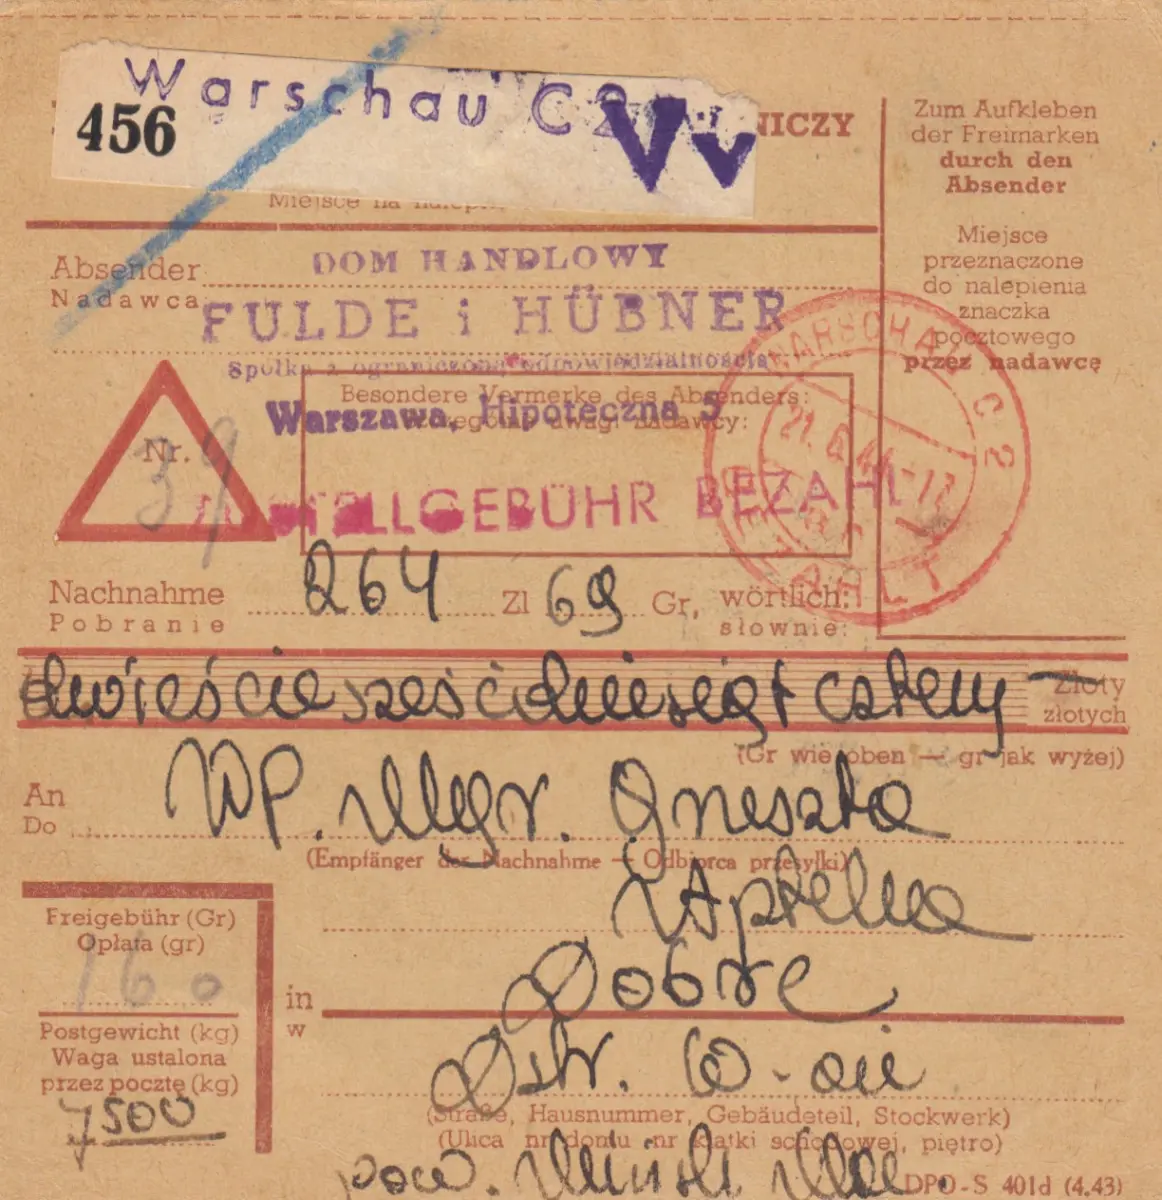 Warschau C2
456
Vv
NICZY
Miejsce na nalepk
Zum Aufkleben
der Freimarken
durch den
Absender
Miejsce
przeznaczone
do nalepienia
znaczka
pocztowego
przez nadawcę
Absender
Nadawca
DOM HANDLOWY
FULDE i HÜBNER
Spółka z ograniczoną odpowiedzialnością
Warszawa, Hipoteczna 5
Besondere Vermerke des Absenders:
uwagi nadawcy:
Nr. 39
ZUSTELLGEBÜHR BEZAHLT
WARSCHAU C2
21.6.44-17
BEZAHLT
Nachnahme 264 Zl 69 Gr, wörtlich:
Pobranie słownie:
dwieście sześćdziesiąt cztery Złoty
złotych
(Gr wie oben — gr jak wyżej)
An WP. Mgr. Gneszka
Do
(Empfänger der Nachnahme — Odbiorca przesyłki)
Apteka
Freigebühr (Gr)
Opłata (gr)
160
in Dobre
w
Postgewicht (kg)
Waga ustalona
przez pocztę (kg)
7500
Dstr. W-wie
(Straße, Hausnummer, Gebäudeteil, Stockwerk)
(Ulica nr domu nr klatki schodowej, piętro)
pow. Mińsk Maz.
DPO-S 401d (4.43)